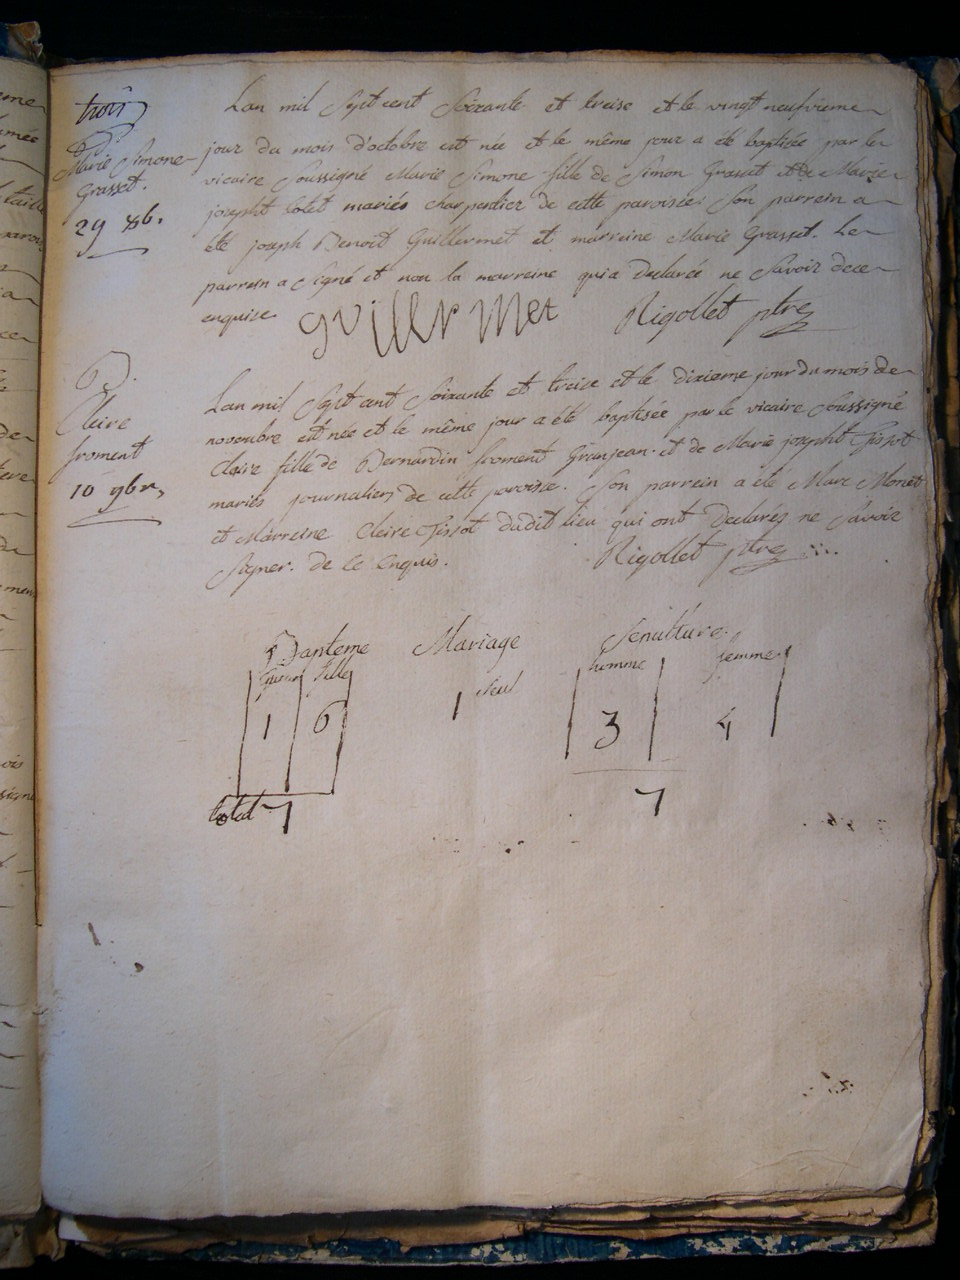 trois
B
Marie Simone
Grasset.
29 8b.
Lan mil Sept cent Soixante et treise et le vingt neufvieme
jour du mois d'octobre est née et le même jour a été baptisée par le
vicaire Soussigné Marie Simone fille de Simon Grasset et de Marie
josepht Cotet mariés charpentier de cette paroisse Son parrein a
été joseph Benoit Guillermet et marreine Marie Grasset. Le
parrein a Signé et non la marreine qui a Declarée ne Savoir de ce
enquise
guillermet Rigollet ptre
B.
Claire
froment
10 9br,
Lan mil Sept cent Soixante et treise et le dixieme jour du mois de
novembre est née et le même jour a été baptisée par le vicaire Soussigné
Claire fille de Bernardin froment Granjean et de Marie josepht Tissot
mariés journaliers de cette paroisse. Son parrein a été Marc Monet
et Marreine Claire Tissot dudit lieu qui ont Declarés ne Savoir
Signer. de ce Enquis.
Rigollet ptre
Bapteme Mariage Sepulture
fille homme femme
1 6 1 seul 3 4
total 7 7